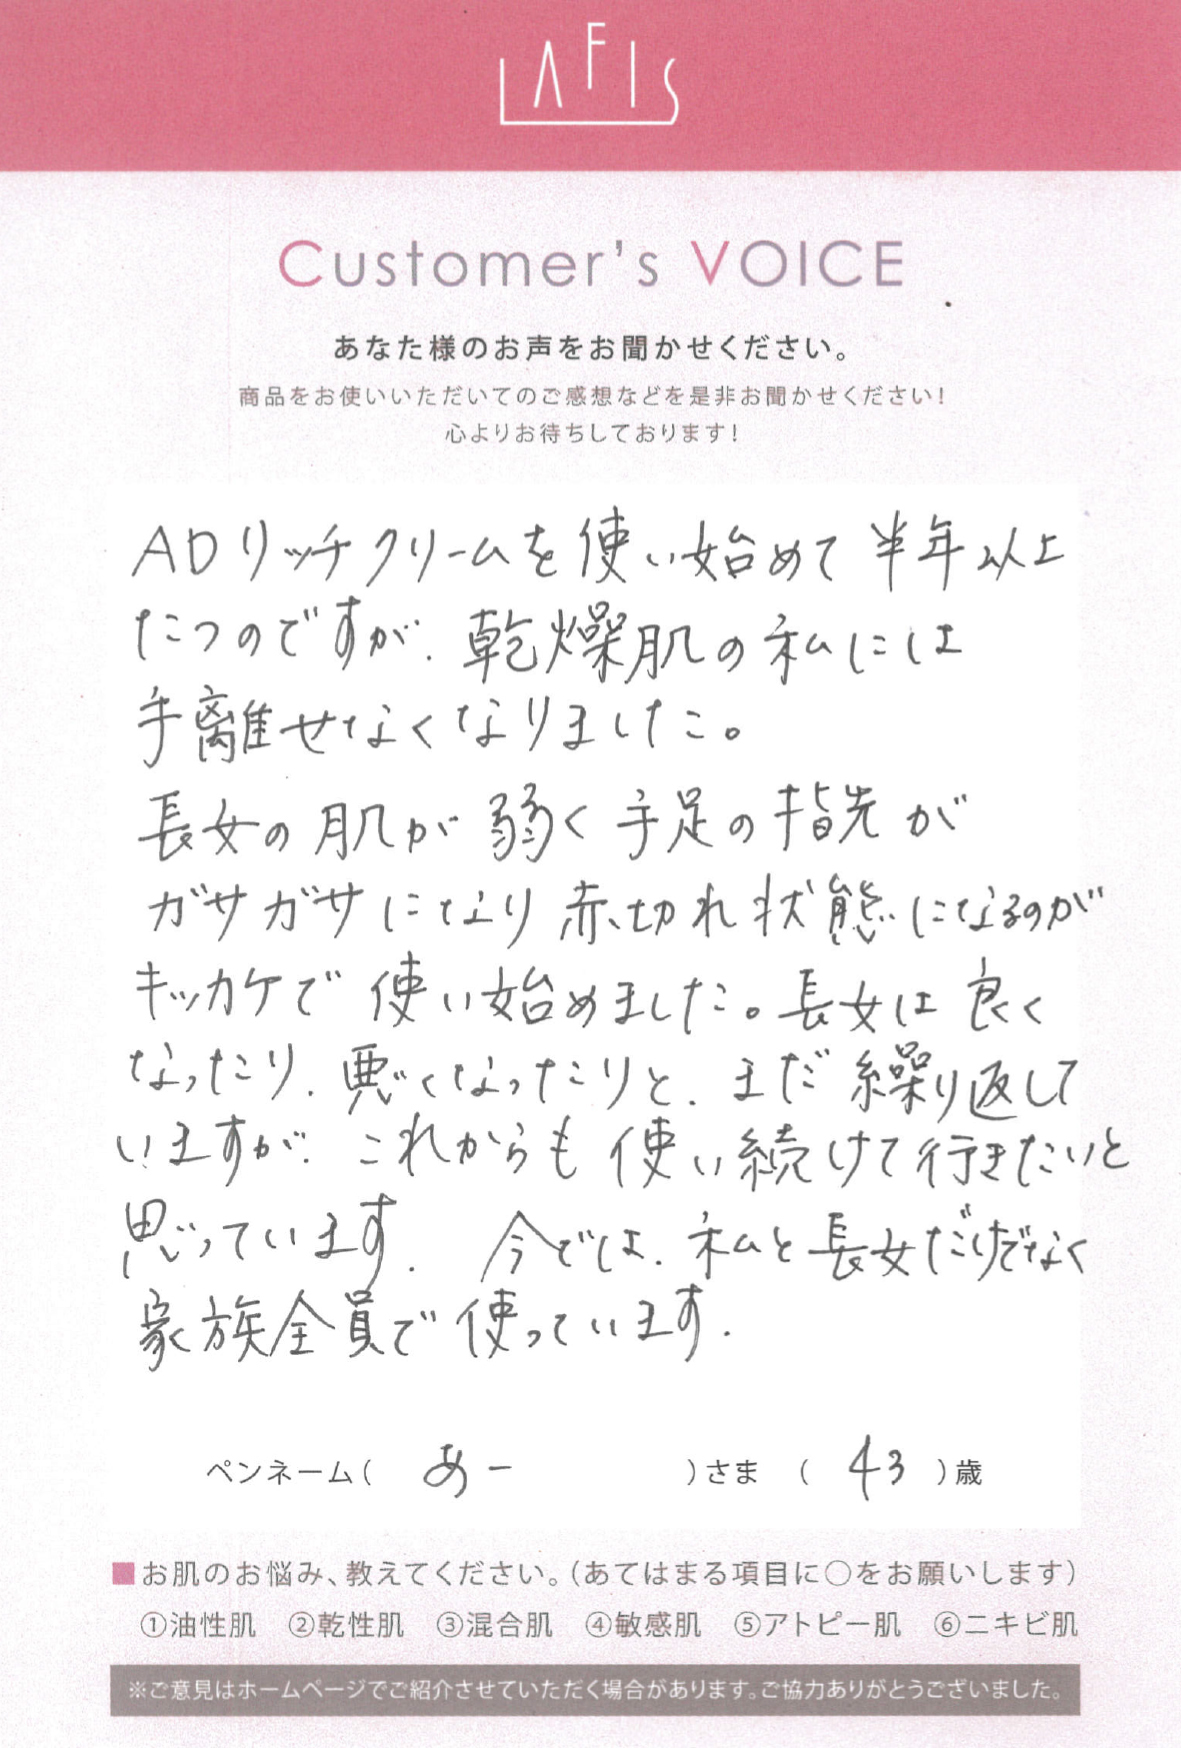 LAFIS
Customer's VOICE
あなた様のお声をお聞かせください。
商品をお使いいただいてのご感想などを是非お聞かせください!
心よりお待ちしております!
ADリッチクリームを使い始めて半年以上
たつのですが、乾燥肌の私には
手離せなくなりました。
長女の肌が弱く手足の指先が
ガサガサになり赤切れ状態になるのが
キッカケで使い始めました。長女は良く
なったり、悪くなったりと、まだ繰り返して
いますが、これからも使い続けて行きたいと
思っています. 今では、私と長女だけでなく
家族全員で使っています.
ペンネーム( あー )さま ( 43 )歳
■お肌のお悩み、教えてください。(あてはまる項目に○をお願いします)
①油性肌 ②乾性肌 ③混合肌 ④敏感肌 ⑤アトピー肌 ⑥ニキビ肌
※ご意見はホームページでご紹介させていただく場合があります。ご協力ありがとうございました。